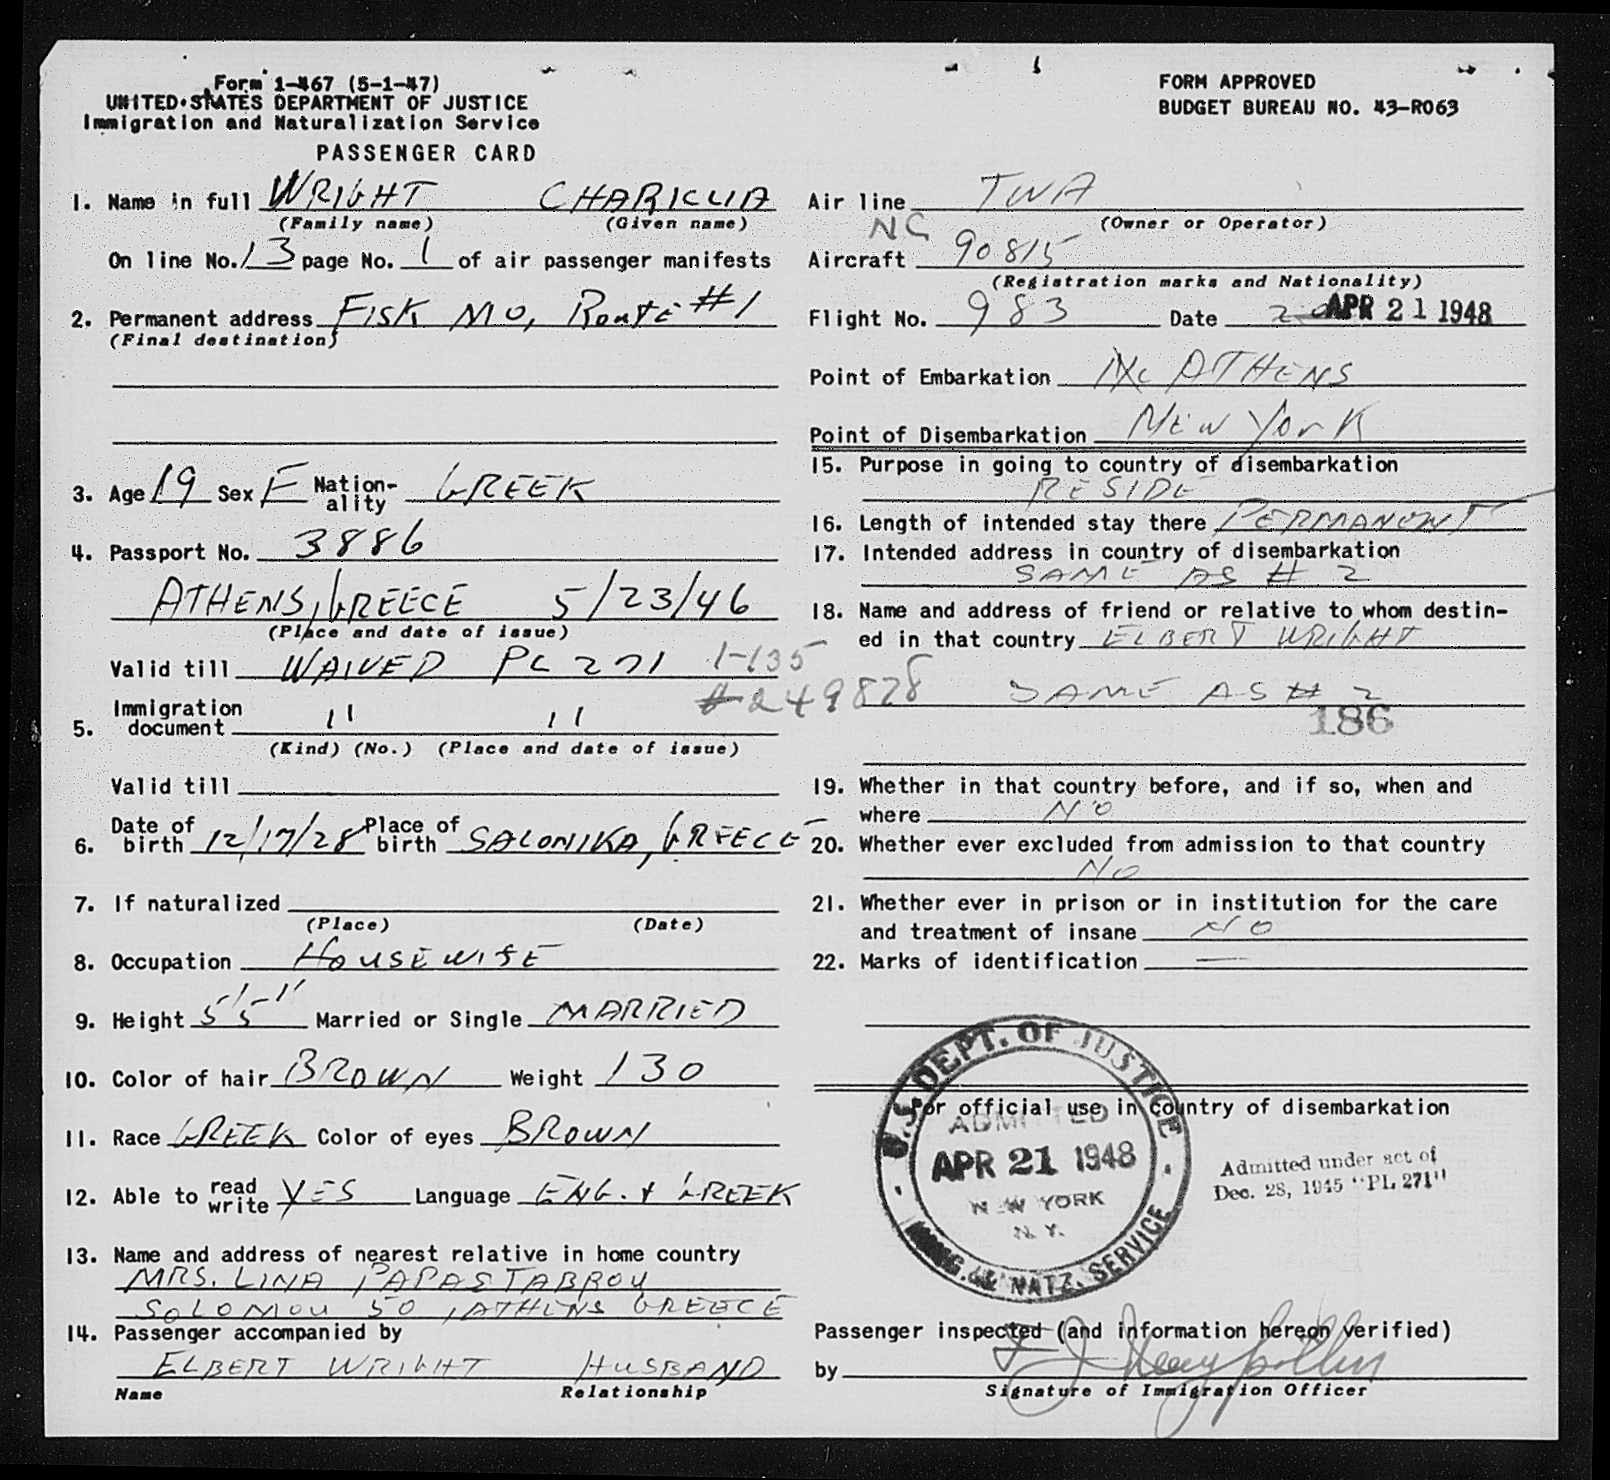 Form 1-467 (5-1-47)
UNITED STATES DEPARTMENT OF JUSTICE
Immigration and Naturalization Service
PASSENGER CARD
FORM APPROVED
BUDGET BUREAU NO. 43-R063
1. Name in full WRIGHT CHARICLIA
(Family name) (Given name)
On line No. 13 page No. 1 of air passenger manifests
2. Permanent address FISK MO, Route #1
(Final destination)
3. Age 19 Sex F Nation-ality GREEK
4. Passport No. 3886
ATHENS, GREECE 5/23/46
(Place and date of issue)
Valid till WAIVED PL 271 1-135
#249828
5. Immigration document " "
(Kind) (No.) (Place and date of issue)
Valid till
6. Date of birth 12/17/28 Place of birth SALONIKA, GREECE
7. If naturalized
(Place) (Date)
8. Occupation HOUSEWIFE
9. Height 5'5" Married or Single MARRIED
10. Color of hair BROWN Weight 130
11. Race GREEK Color of eyes BROWN
12. Able to read write YES Language ENG. + GREEK
13. Name and address of nearest relative in home country
MRS. LINA PAPASTABROU
SOLOMOU 50, ATHENS GREECE
14. Passenger accompanied by
ELBERT WRIGHT HUSBAND
Name Relationship
Air line TWA
(Owner or Operator)
NC
Aircraft 90815
(Registration marks and Nationality)
Flight No. 983 Date APR 21 1948
Point of Embarkation ATHENS
Point of Disembarkation New York
15. Purpose in going to country of disembarkation
RESIDE
16. Length of intended stay there PERMANENT
17. Intended address in country of disembarkation
SAME AS # 2
18. Name and address of friend or relative to whom destin-
ed in that country ELBERT WRIGHT
SAME AS # 2
186
19. Whether in that country before, and if so, when and
where NO
20. Whether ever excluded from admission to that country
NO
21. Whether ever in prison or in institution for the care
and treatment of insane NO
22. Marks of identification —
For official use in country of disembarkation
U.S. DEPT. OF JUSTICE
ADMITTED
APR 21 1948
NEW YORK
N. Y.
IMMIG. & NATZ. SERVICE
Admitted under act of
Dec. 28, 1945 "PL 271"
Passenger inspected (and information hereon verified)
by
Signature of Immigration Officer